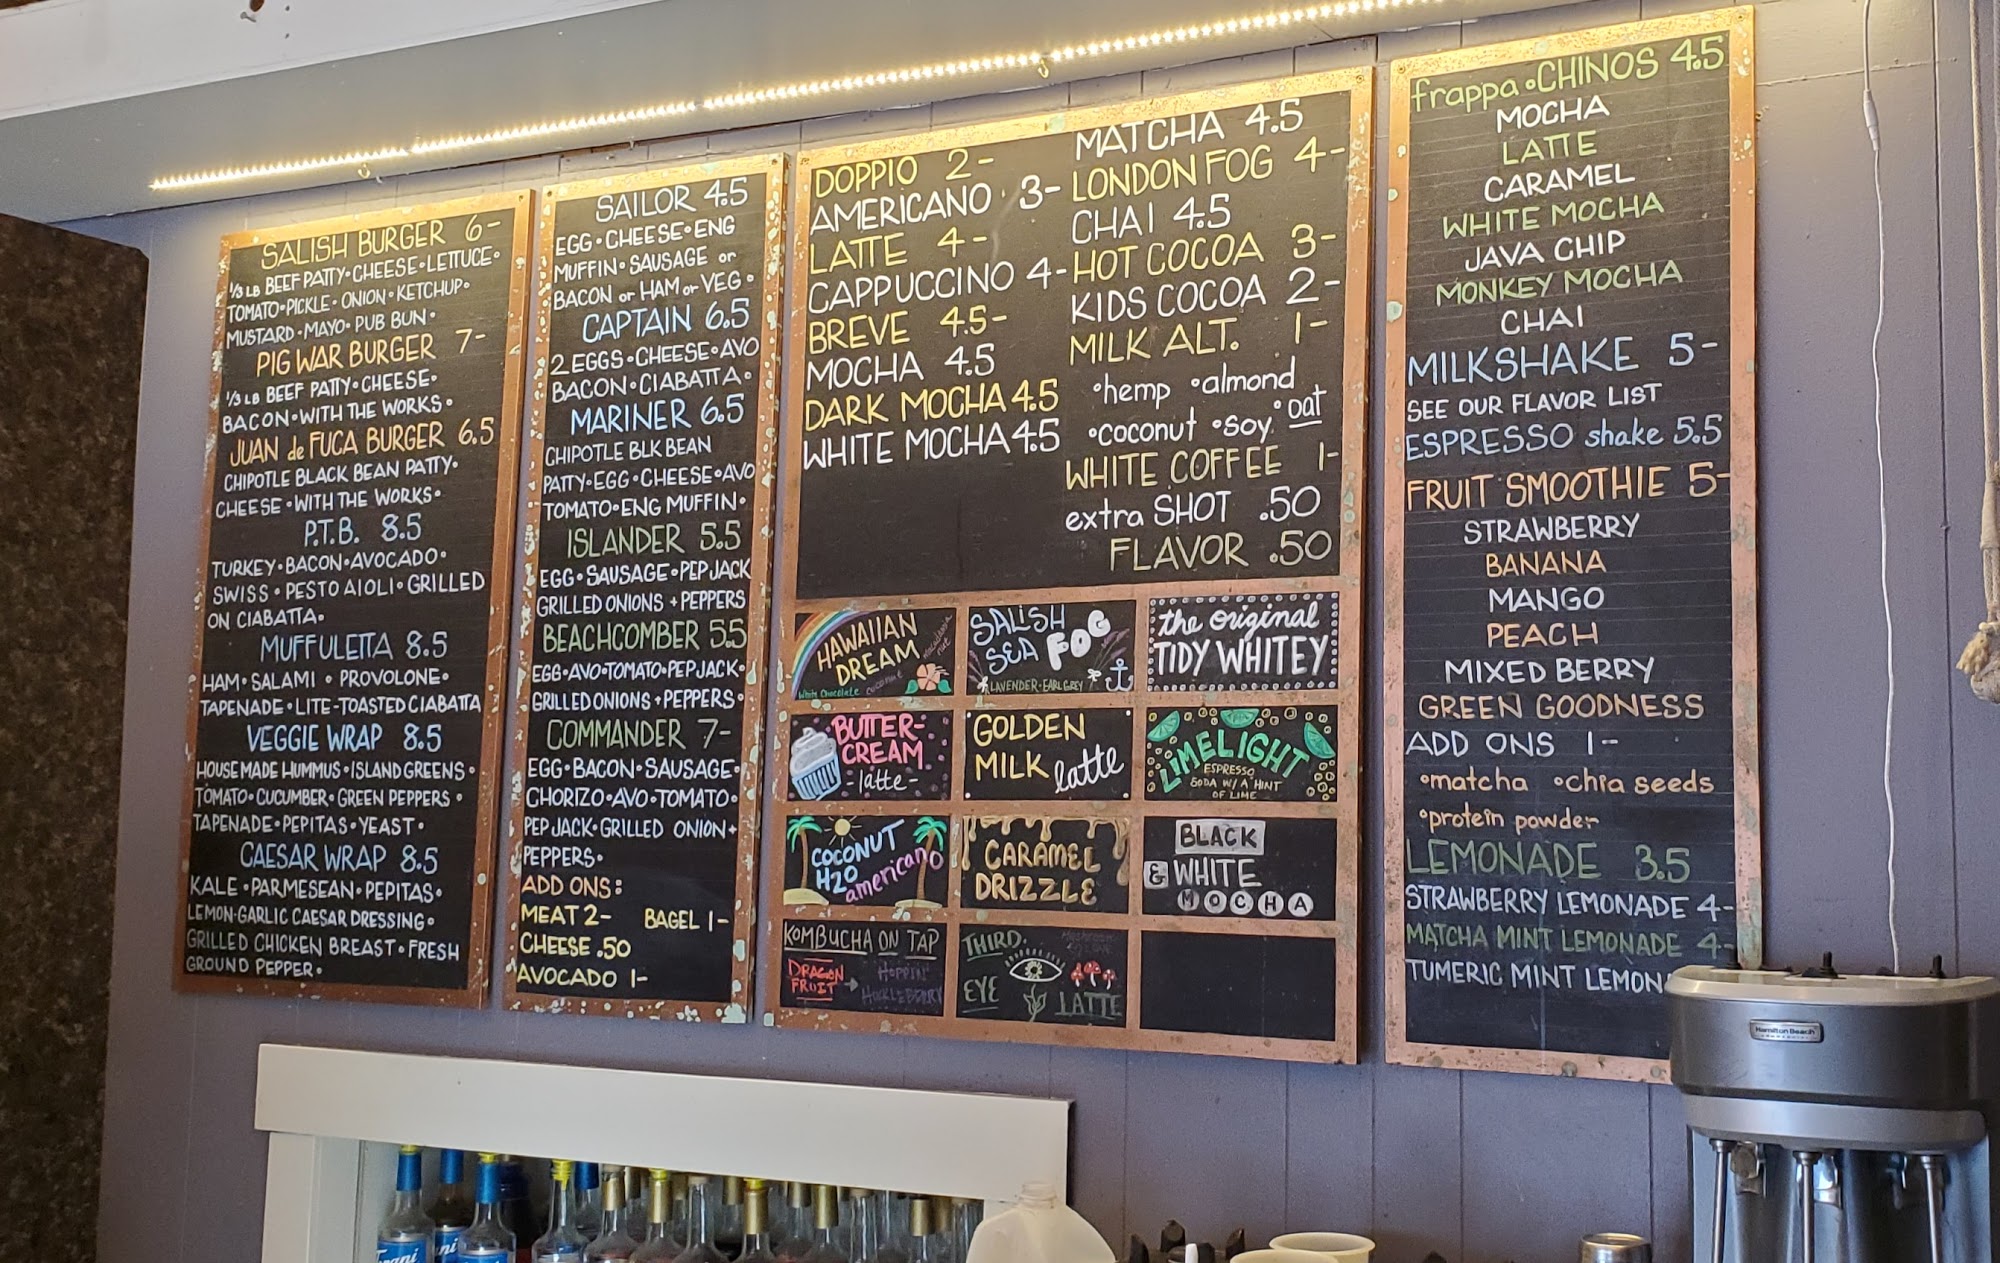 SALISH BURGER 6-
1/3 LB BEEF PATTY•CHEESE•LETTUCE•
TOMATO•PICKLE•ONION•KETCHUP•
MUSTARD•MAYO•PUB BUN•
PIG WAR BURGER 7-
1/3 LB BEEF PATTY•CHEESE•
BACON•WITH THE WORKS•
JUAN de FUCA BURGER 6.5
CHIPOTLE BLACK BEAN PATTY•
CHEESE•WITH THE WORKS•
P.T.B. 8.5
TURKEY•BACON•AVOCADO•
SWISS•PESTO AIOLI•GRILLED
ON CIABATTA•
MUFFULETTA 8.5
HAM•SALAMI•PROVOLONE•
TAPENADE•LITE-TOASTED CIABATTA
VEGGIE WRAP 8.5
HOUSEMADE HUMMUS•ISLAND GREENS•
TOMATO•CUCUMBER•GREEN PEPPERS•
TAPENADE•PEPITAS•YEAST•
CAESAR WRAP 8.5
KALE•PARMESEAN•PEPITAS•
LEMON-GARLIC CAESAR DRESSING•
GRILLED CHICKEN BREAST•FRESH
GROUND PEPPER•
SAILOR 4.5
EGG•CHEESE•ENG
MUFFIN•SAUSAGE or
BACON or HAM or VEG•
CAPTAIN 6.5
2 EGGS•CHEESE•AVO
BACON•CIABATTA•
MARINER 6.5
CHIPOTLE BLK BEAN
PATTY•EGG•CHEESE•AVO
TOMATO•ENG MUFFIN•
ISLANDER 5.5
EGG•SAUSAGE•PEPJACK
GRILLED ONIONS + PEPPERS
BEACHCOMBER 5.5
EGG•AVO•TOMATO•PEPJACK•
GRILLED ONIONS + PEPPERS•
COMMANDER 7-
EGG•BACON•SAUSAGE•
CHORIZO•AVO•TOMATO•
PEPJACK•GRILLED ONION+
PEPPERS•
ADD ONS:
MEAT 2- BAGEL 1-
CHEESE .50
AVOCADO 1-
DOPPIO 2-
AMERICANO 3-
LATTE 4-
CAPPUCCINO 4-
BREVE 4.5-
MOCHA 4.5
DARK MOCHA 4.5
WHITE MOCHA 4.5
MATCHA 4.5
LONDON FOG 4-
CHAI 4.5
HOT COCOA 3-
KIDS COCOA 2-
MILK ALT. 1-
•hemp •almond
•coconut •soy •oat
WHITE COFFEE 1-
extra SHOT .50
FLAVOR .50
HAWAIIAN
DREAM
White Chocolate coconut macadamia nut
SALISH
SEA FOG
LAVENDER•EARL GREY
the original
TIDY WHITEY
BUTTER-
CREAM
-latte-
GOLDEN
MILK latte
LIMELIGHT
ESPRESSO
SODA W/ A HINT
OF LIME
COCONUT
H2O
americano
CARAMEL
DRIZZLE
BLACK
& WHITE
MOCHA
KOMBUCHA ON TAP
DRAGON
FRUIT
HOPPIN'
HUCKLEBERRY
THIRD
EYE
LATTE
frappa•CHINOS 4.5
MOCHA
LATTE
CARAMEL
WHITE MOCHA
JAVA CHIP
MONKEY MOCHA
CHAI
MILKSHAKE 5-
SEE OUR FLAVOR LIST
ESPRESSO shake 5.5
FRUIT SMOOTHIE 5-
STRAWBERRY
BANANA
MANGO
PEACH
MIXED BERRY
GREEN GOODNESS
ADD ONS 1-
•matcha •chia seeds
•protein powder
LEMONADE 3.5
STRAWBERRY LEMONADE 4-
MATCHA MINT LEMONADE 4-
TUMERIC MINT LEMON
Hamilton Beach
Torani